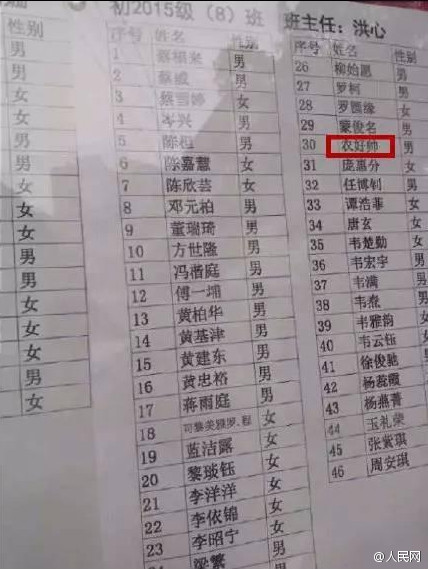 性别
男
男
女
女
女
男
女
女
女
男
男
女
女
男
女
初2015级（8）班 班主任：洪心
序号 姓名 性别
1 蔡相来 男
2 蔡威 男
3 蔡雪婷 女
4 岑兴 男
5 男
6 陈嘉慧 女
7 陈欣芸 女
8 邓元柏 男
9 董瑞琦 男
10 方世隆 男
11 冯楷庭 男
12 傅一 男
13 黄柏华 男
14 黄基津 男
15 黄建东 男
16 黄忠裕 男
17 蒋雨庭 男
18 女
19 蓝洁露 女
20 黎琰钰 女
21 李洋洋 女
22 李依锦 女
23 李昭宁 女
梁繁 男
序号 姓名 性别
26 柳始愿 男
27 罗柯 男
28 罗圆缘 女
29 蒙俊名 男
30 农好帅 男
31 庞惠分 女
32 任博钊 男
33 谭浩菲 女
34 唐玄 女
35 韦楚勤 女
36 韦宏宇 男
37 韦满 男
38 韦焘 男
39 韦雅韵 女
40 韦云钰 女
41 徐俊驰 男
42 杨蕊霞 女
43 杨燕菁 女
44 玉礼荣 男
45 张紫琪 女
46 周安琪 女
@人民网